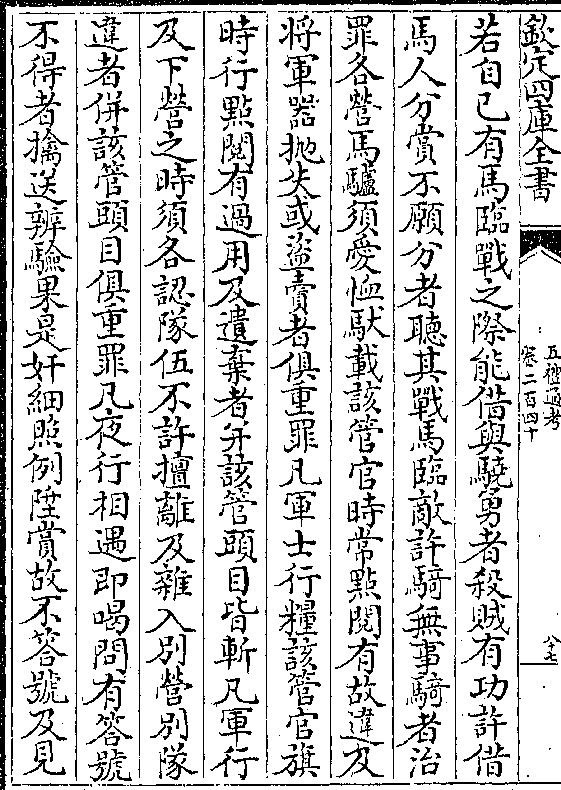 欽定四庫全書
五禮通考
卷二百四十
八十七
若自己有馬臨戰之際能借與驍勇者殺賊有功許借
馬人分賞不願分者聽其戰馬臨敵許騎無事騎者治
罪各營馬驢須愛恤馱載該管官時常點閱有故違及
將軍器抛失或盜賣者俱重罪凡軍士行糧該管官旗
時行點閱有過用及遺棄者并該管頭目皆斬凡軍行
及下營之時須各認隊伍不許擅離及雜入別營別隊
違者併該管頭目俱重罪凡夜行相遇即喝問有答號
不得者擒送辨驗果是奸細照例陞賞故不答號及見